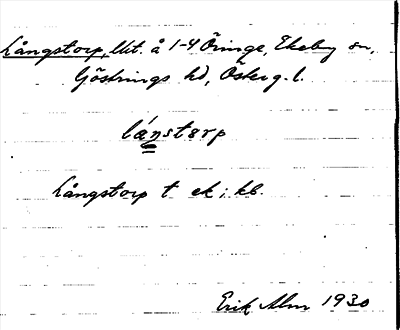 Långstorp, lht. å 1-4 Öringe, Ekeby sn,
Göstrings hd, Österg. l.
lángstorp
Långstorp t ek i. kb.
Erik Alm 1930